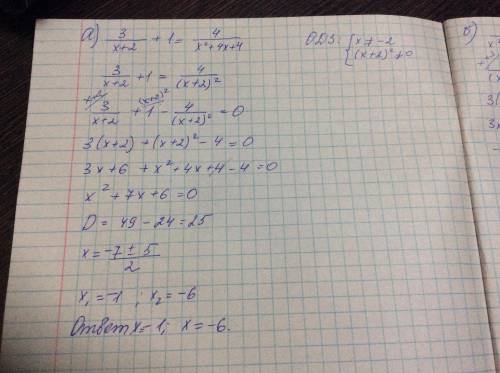 а) 3/(x+2) + 1 = 4/(x²+4x+4)
ОДЗ: { x ≠ -2
(x+2)² ≠ 0
б)
3/(x+2) + 1 = 4/(x+2)²
x+2/ 3/(x+2) + (x+2)²/ 1 - 4/(x+2)² = 0
3(x+2) + (x+2)² - 4 = 0
3x+6 + x² + 4x + 4 - 4 = 0
x² + 7x + 6 = 0
D = 49 - 24 = 25
x = (-7 ± 5)/2
x₁ = -1 ; x₂ = -6
Ответ x = -1; x = -6.